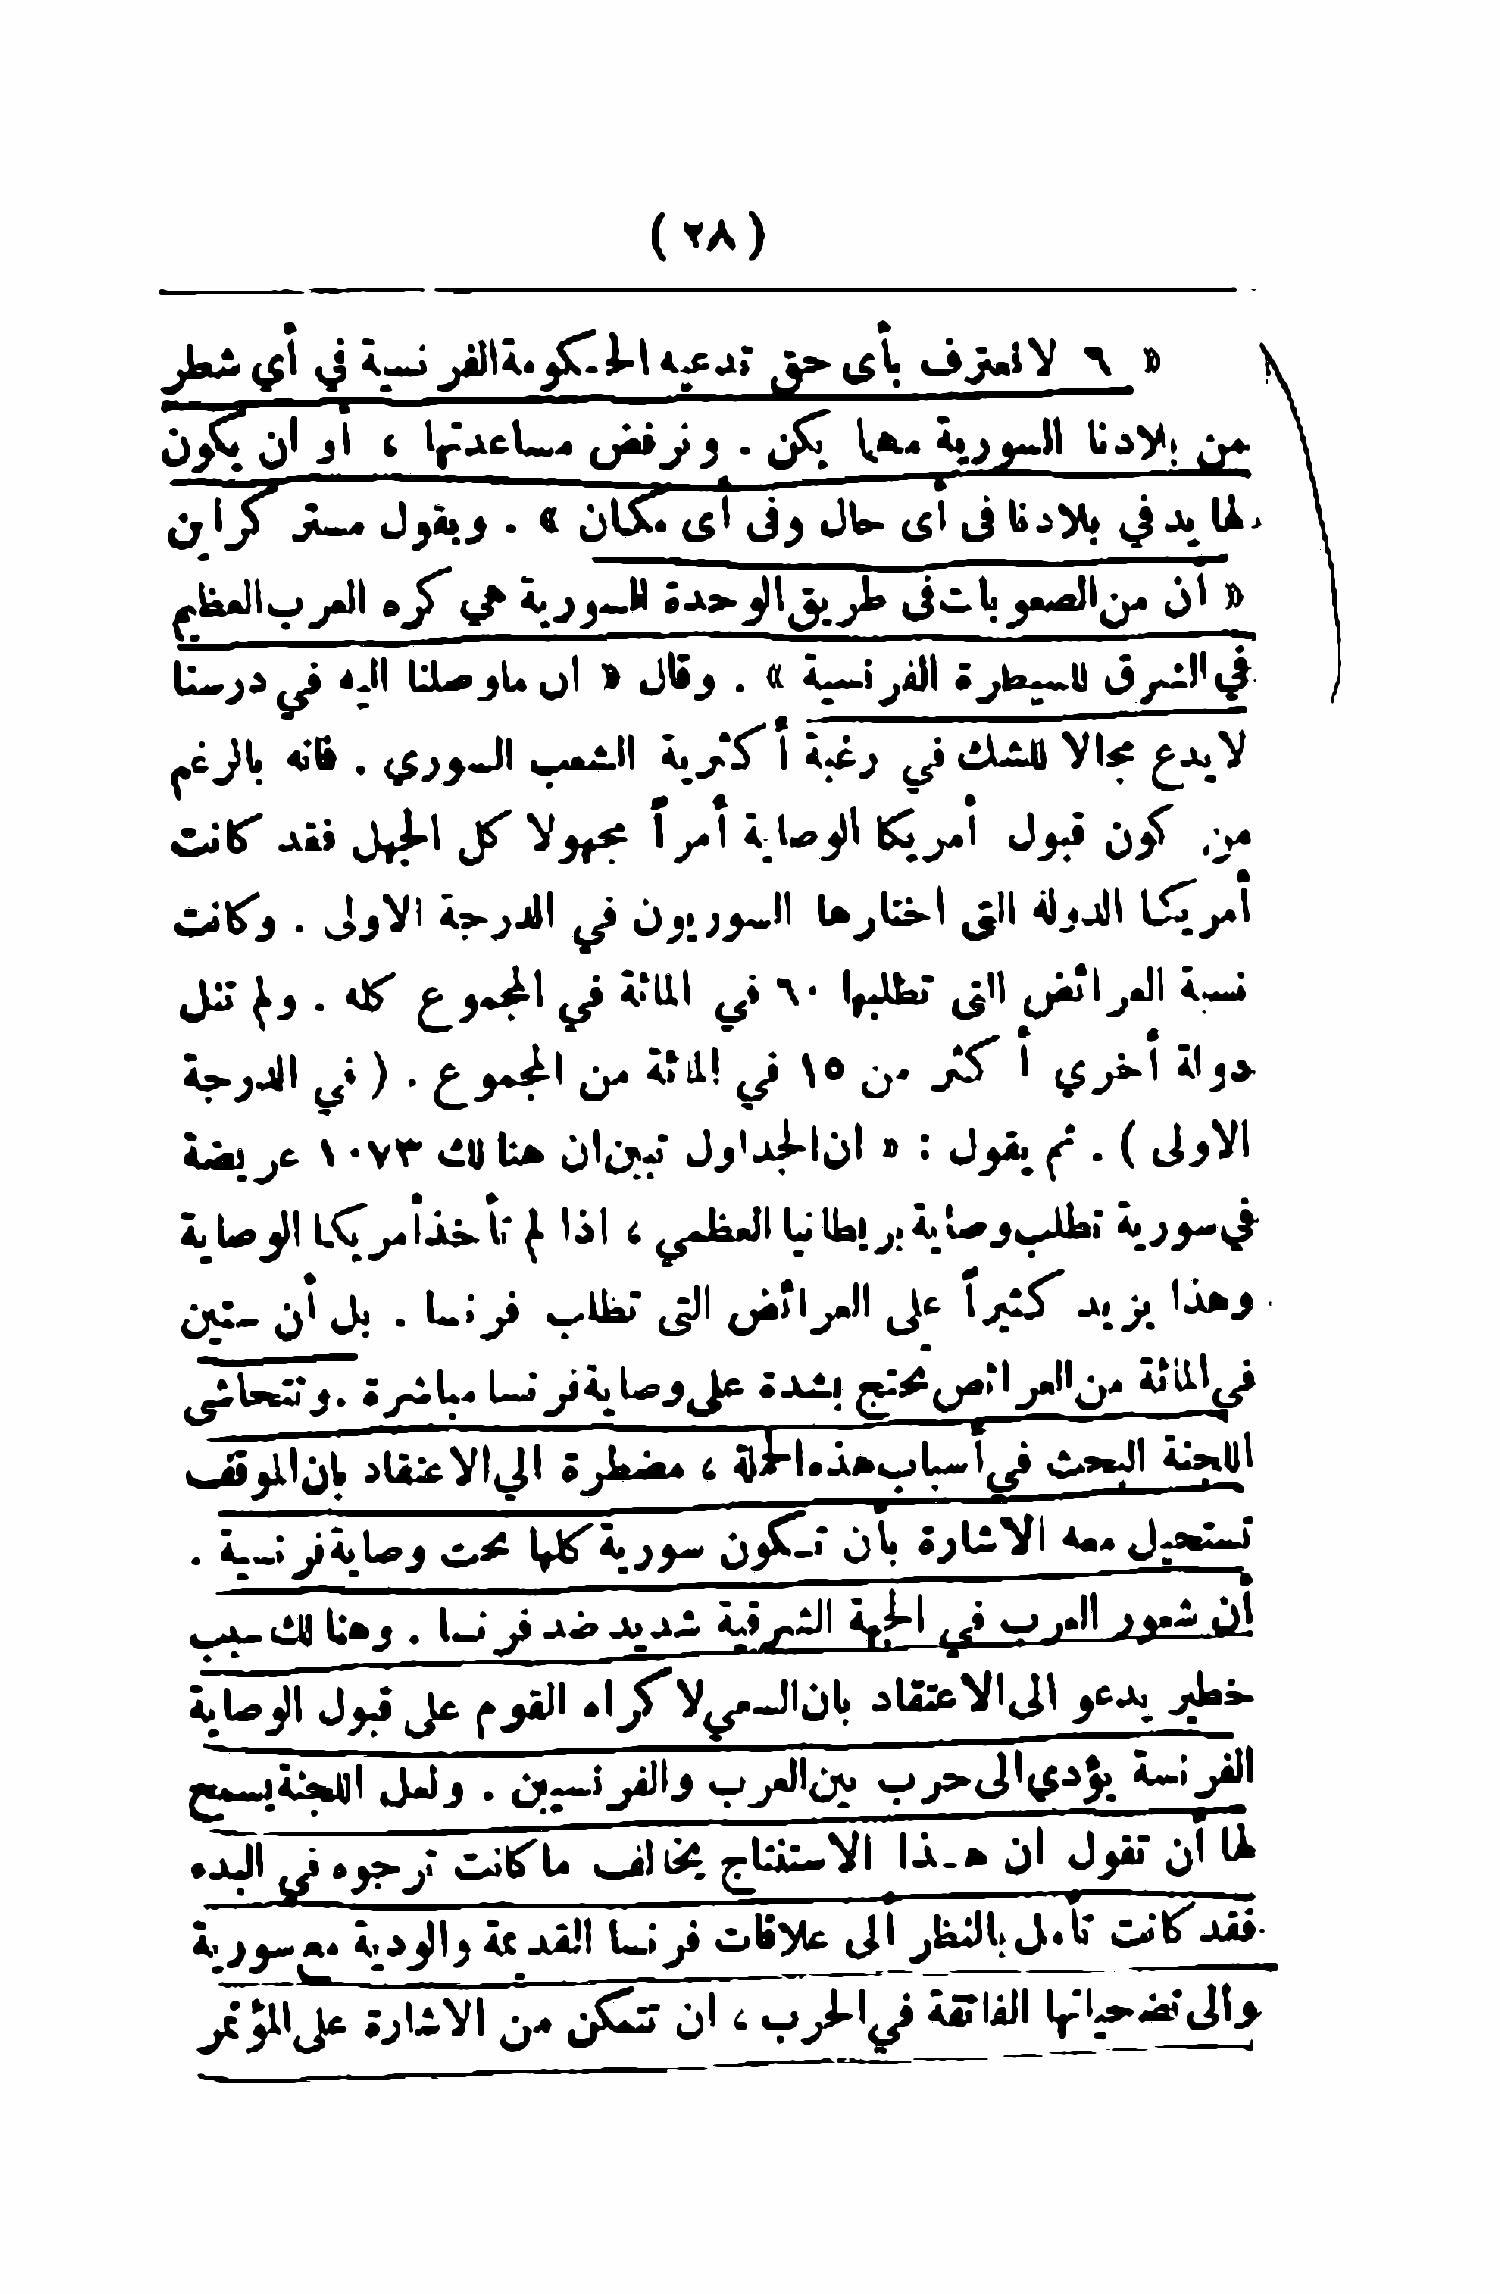 ( ٢٨ )
« ٦ لا نعترف بأى حق تدعيه الحكومة الفرنسية في أي شطر
من بلادنا السورية مهما يكن . ونرفض مساعدتها ، أو ان يكون
لها يد في بلادنا فى أى حال وفى أى مكان » . ويقول مستر كراين
« أن من الصعوبات فى طريق الوحدة السورية هي كره العرب العظيم
في الشرق للسيطرة الفرنسية » . وقال « ان ماوصلنا اليه في درسنا
لا يدع مجالا للشك في رغبة أكثرية الشعب السوري . فانه بالرغم
من كون قبول أمريكا الوصاية أمراً مجهولا كل الجهل فقد كانت
أمريكا الدولة التى اختارها السوريون في الدرجة الاولى . وكانت
نسبة العرائض التى تطلبها ٦٠ في المائة في المجموع كله . ولم تنل
دولة أخري أكثر من ١٥ في المائة من المجموع . ( في الدرجة
الاولى ) . ثم يقول : « ان الجداول تبين ان هنالك ١٠٧٣ عريضة
في سورية تطلب وصاية بريطانيا العظمي ، اذا لم تأخذ أمريكا الوصاية
وهذا يزيد كثيراً على العرائض التى تطلب فرنسا . بل أن ستين
في المائة من العرائض تحتج بشدة على وصاية فرنسا مباشرة . وتتحاشى
اللجنة البحث في أسباب هذه الحملة ، مضطرة الي الاعتقاد بان الموقف
تستحيل معه الاشارة بأن تكون سورية كلها تحت وصاية فرنسية .
أن شعور العرب في الجهة الشرقية شديد ضد فرنسا . وهنالك سبب
خطير يدعو الى الاعتقاد بان السعي لا كراه القوم على قبول الوصاية
الفرنسة يؤدي الى حرب بين العرب والفرنسيين . ولعل اللجنة يسمح
لها أن تقول ان هذا الاستنتاج يخالف ما كانت ترجوه في البدء
فقد كانت تأمل بالنظر الى علاقات فرنسا القديمة والودية مع سورية
والى تضحياتها الفائقة في الحرب ، ان تتمكن من الاشارة على المؤتمر